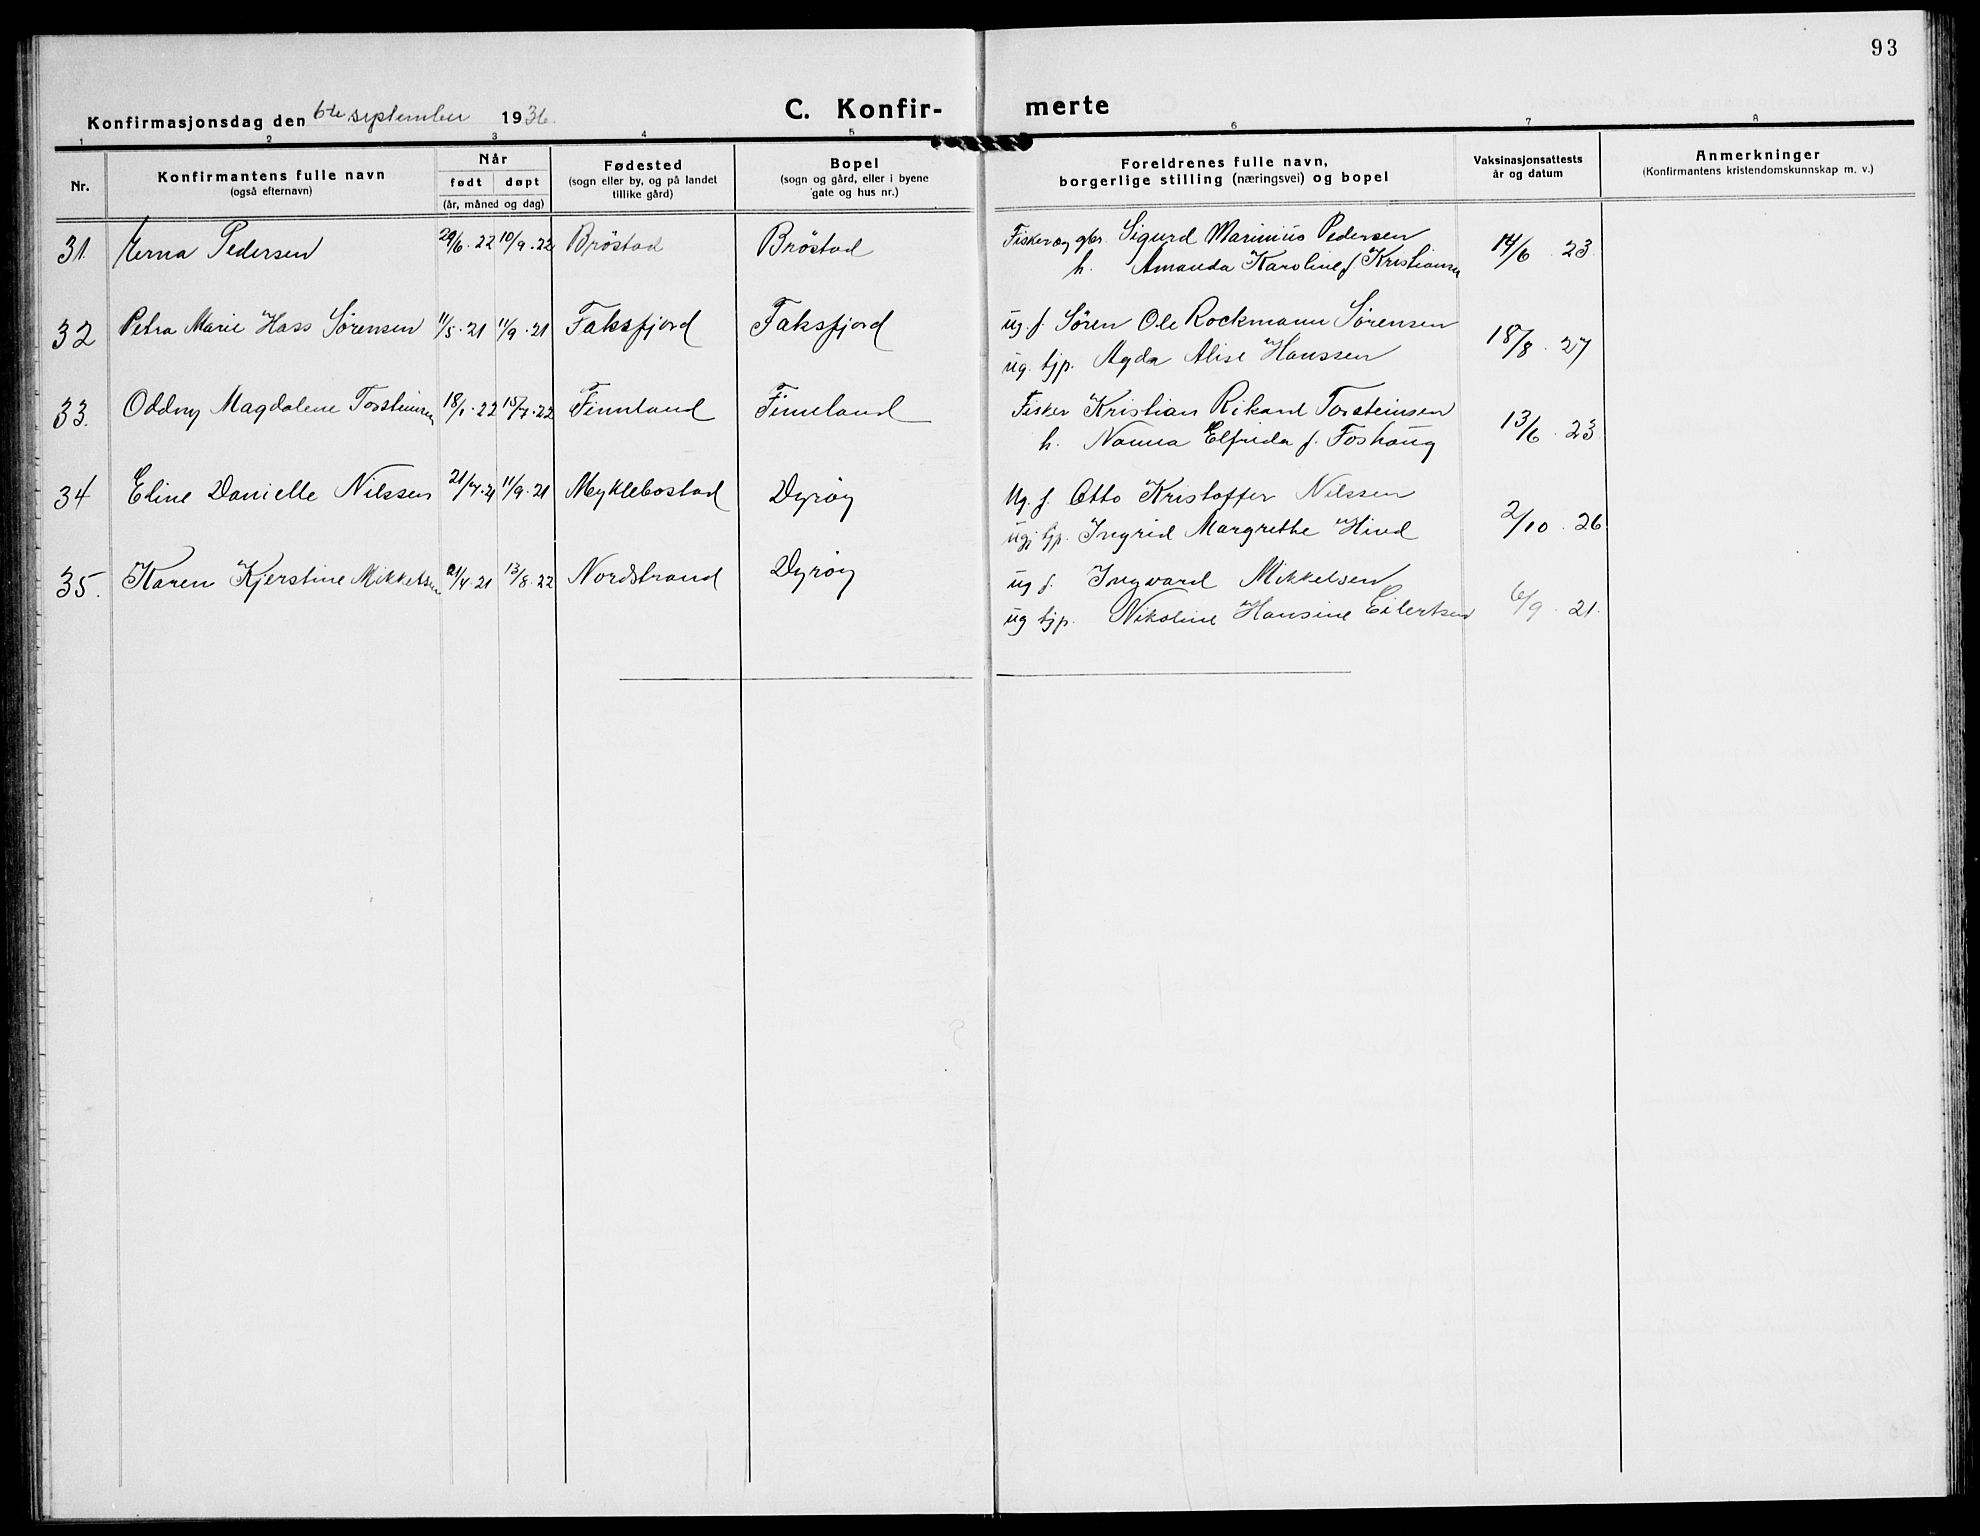 93
Konfirmasjonsdag den 6te september 1936.
C. Konfir- merte
1 2 3 4 5 6 7 8
Nr.
Konfirmantens fulle navn
(også efternavn)
Når
født døpt
(år, måned og dag)
Fødested
(sogn eller by, og på landet
tillike gård)
Bopel
(sogn og gård, eller i byene
gate og hus nr.)
Foreldrenes fulle navn,
borgerlige stilling (næringsvei) og bopel
Vaksinasjonsattests
år og datum
Anmerkninger
(Konfirmantens kristendomskunnskap m. v.)
31. Erna Pedersen 29/6.22 10/9.22 Bröstad Bröstad Fisker og gbr. Sigurd Marinius Pedersen 14/6 23.
h. Amanda Karoline f. Kristiansen
32 Petra Marie Hass Sørensen 11/5.21 11/9.21 Faksfjord Faksfjord ug. f. Søren Ole Rockmann Sørensen 18/8.27
ug. tjp. Agda Alise Hanssen
33. Oddny Magdalene Torsteinsen 18/1.22 15/7.22 Finnland Finnland Fisker Kristian Rikard Torsteinsen 13/6.23
h. Nanna Elfrida f. Foshaug
34 Eline Danielle Nilssen 21/7.21 11/9.21 Myklebostad Dyrøy Ug. f. Otto Kristoffer Nilssen 2/10.26.
ug. tjp. Ingrid Margrethe Hind
35. Karen Kjerstine Mikkelsen 21/4.21 13/8.22 Nordstrand Dyrøy ug f. Ingvard Mikkelsen 6/9.21.
ug tjp. Nikoline Hansine Eilertsen